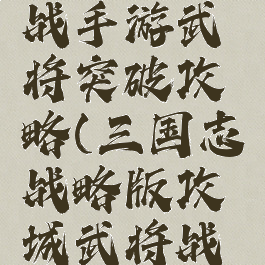 战手游武
将突破攻
略(三国志
战略版攻
城武将战